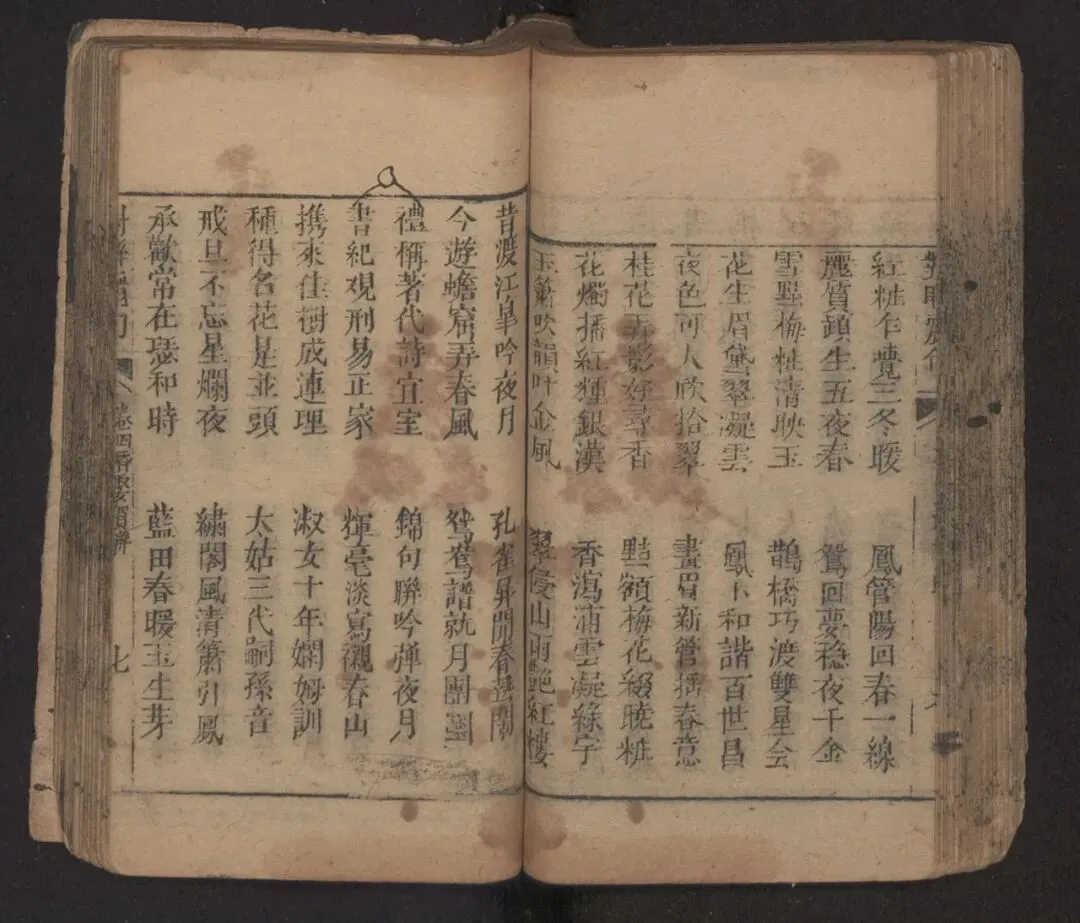 紅粧乍覺三冬暖
鳳管陽回春一線
麗質頻生五夜春
鴛回夢穩夜千金
雪點梅粧清映玉
鵲橋巧渡雙星會
花生眉黛翠凝雲
鳳卜和諧百世昌
夜色可人欣拾翠
畫眉新管描春意
桂花弄影好尋香
點額梅花綴曉粧
花燭搖紅輝銀漢
香瀉浦雲凝綠宇
玉簫吹韻叶金風
翠侵山雨艷紅樓
昔渡江臯吟夜月
孔雀屏開春
今遊蟾窟弄春風
鴛鴦譜就月團圞
禮稱著代詩宜室
錦句聯吟彈夜月
書紀观刑易正家
輝毫淡寫襯春山
携來佳樹成連理
淑女十年嫻姆訓
種得名花是並頭
太姑三代嗣孫音
戒旦不忘星爛夜
繡閣風清簫引鳳
承歡常在瑟和時
藍田春暖玉生芽
卷四
七